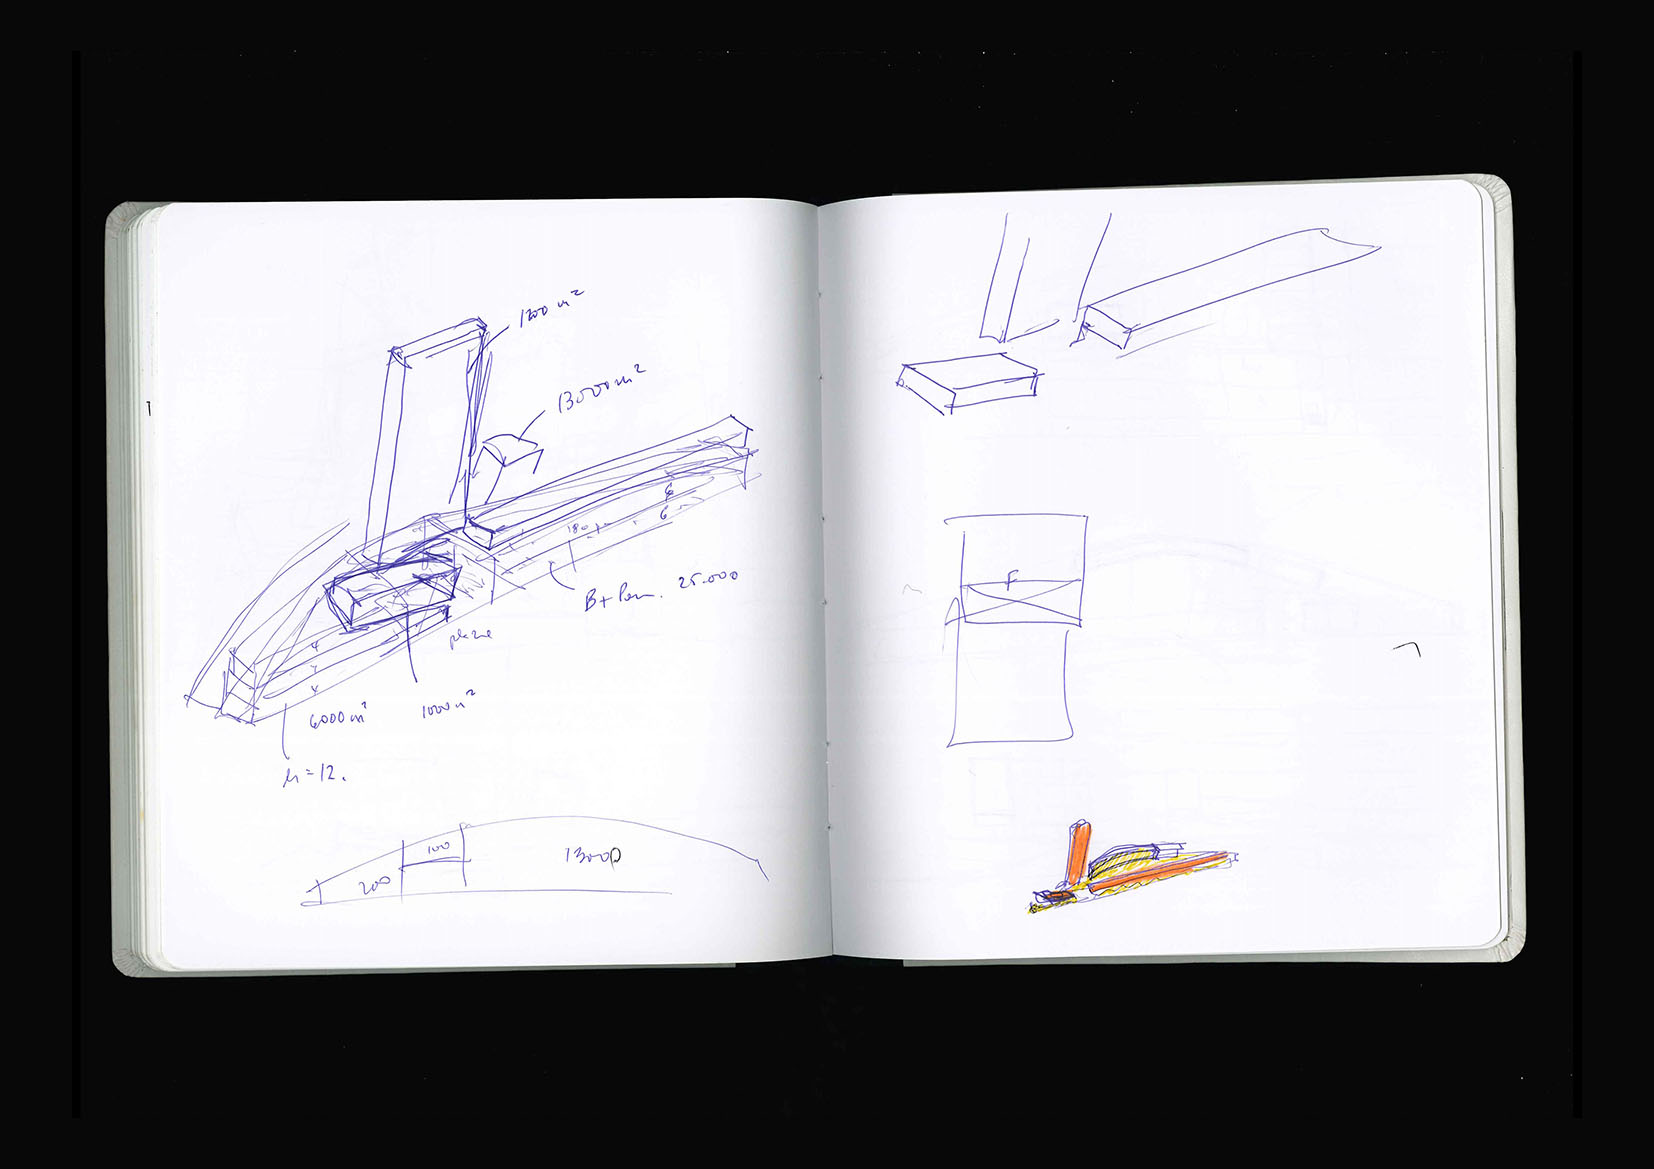 1200 m²
13000 m²
6
180 pm
6 m
B + Pem. 25.000
plaza
4
4
4
6000 m²
1000 m²
h = 12.
100
200
13000
F